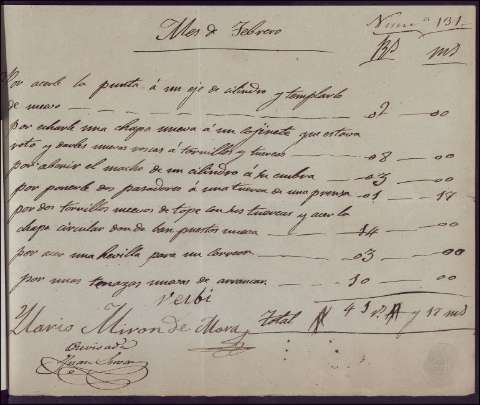 Mes de Febrero
Num.º 131.
Rs ms
Por acerle la punta á un eje de cilindro y templarlo
de nuevo 02 00
por echarle una chapa nueva á un cojinete que estava
roto y darles nuevas roscas á tornillos y tuercas 08 00
por abrir el macho de un cilindro á su embra 03 00
por ponerle dos pasadores á una tuerca de una prensa 01 17
por dos tornillos nuevos de tope con sus tuercas y acer la
chapa circular don de ban puestos nueva 14 00
por acer una hevilla para un correon 03 00
por unas tenazas nuevas de arrancar 10 00
Total 41 rs y 17 ms
Ylario Miron de Mora
Revisada
Juan